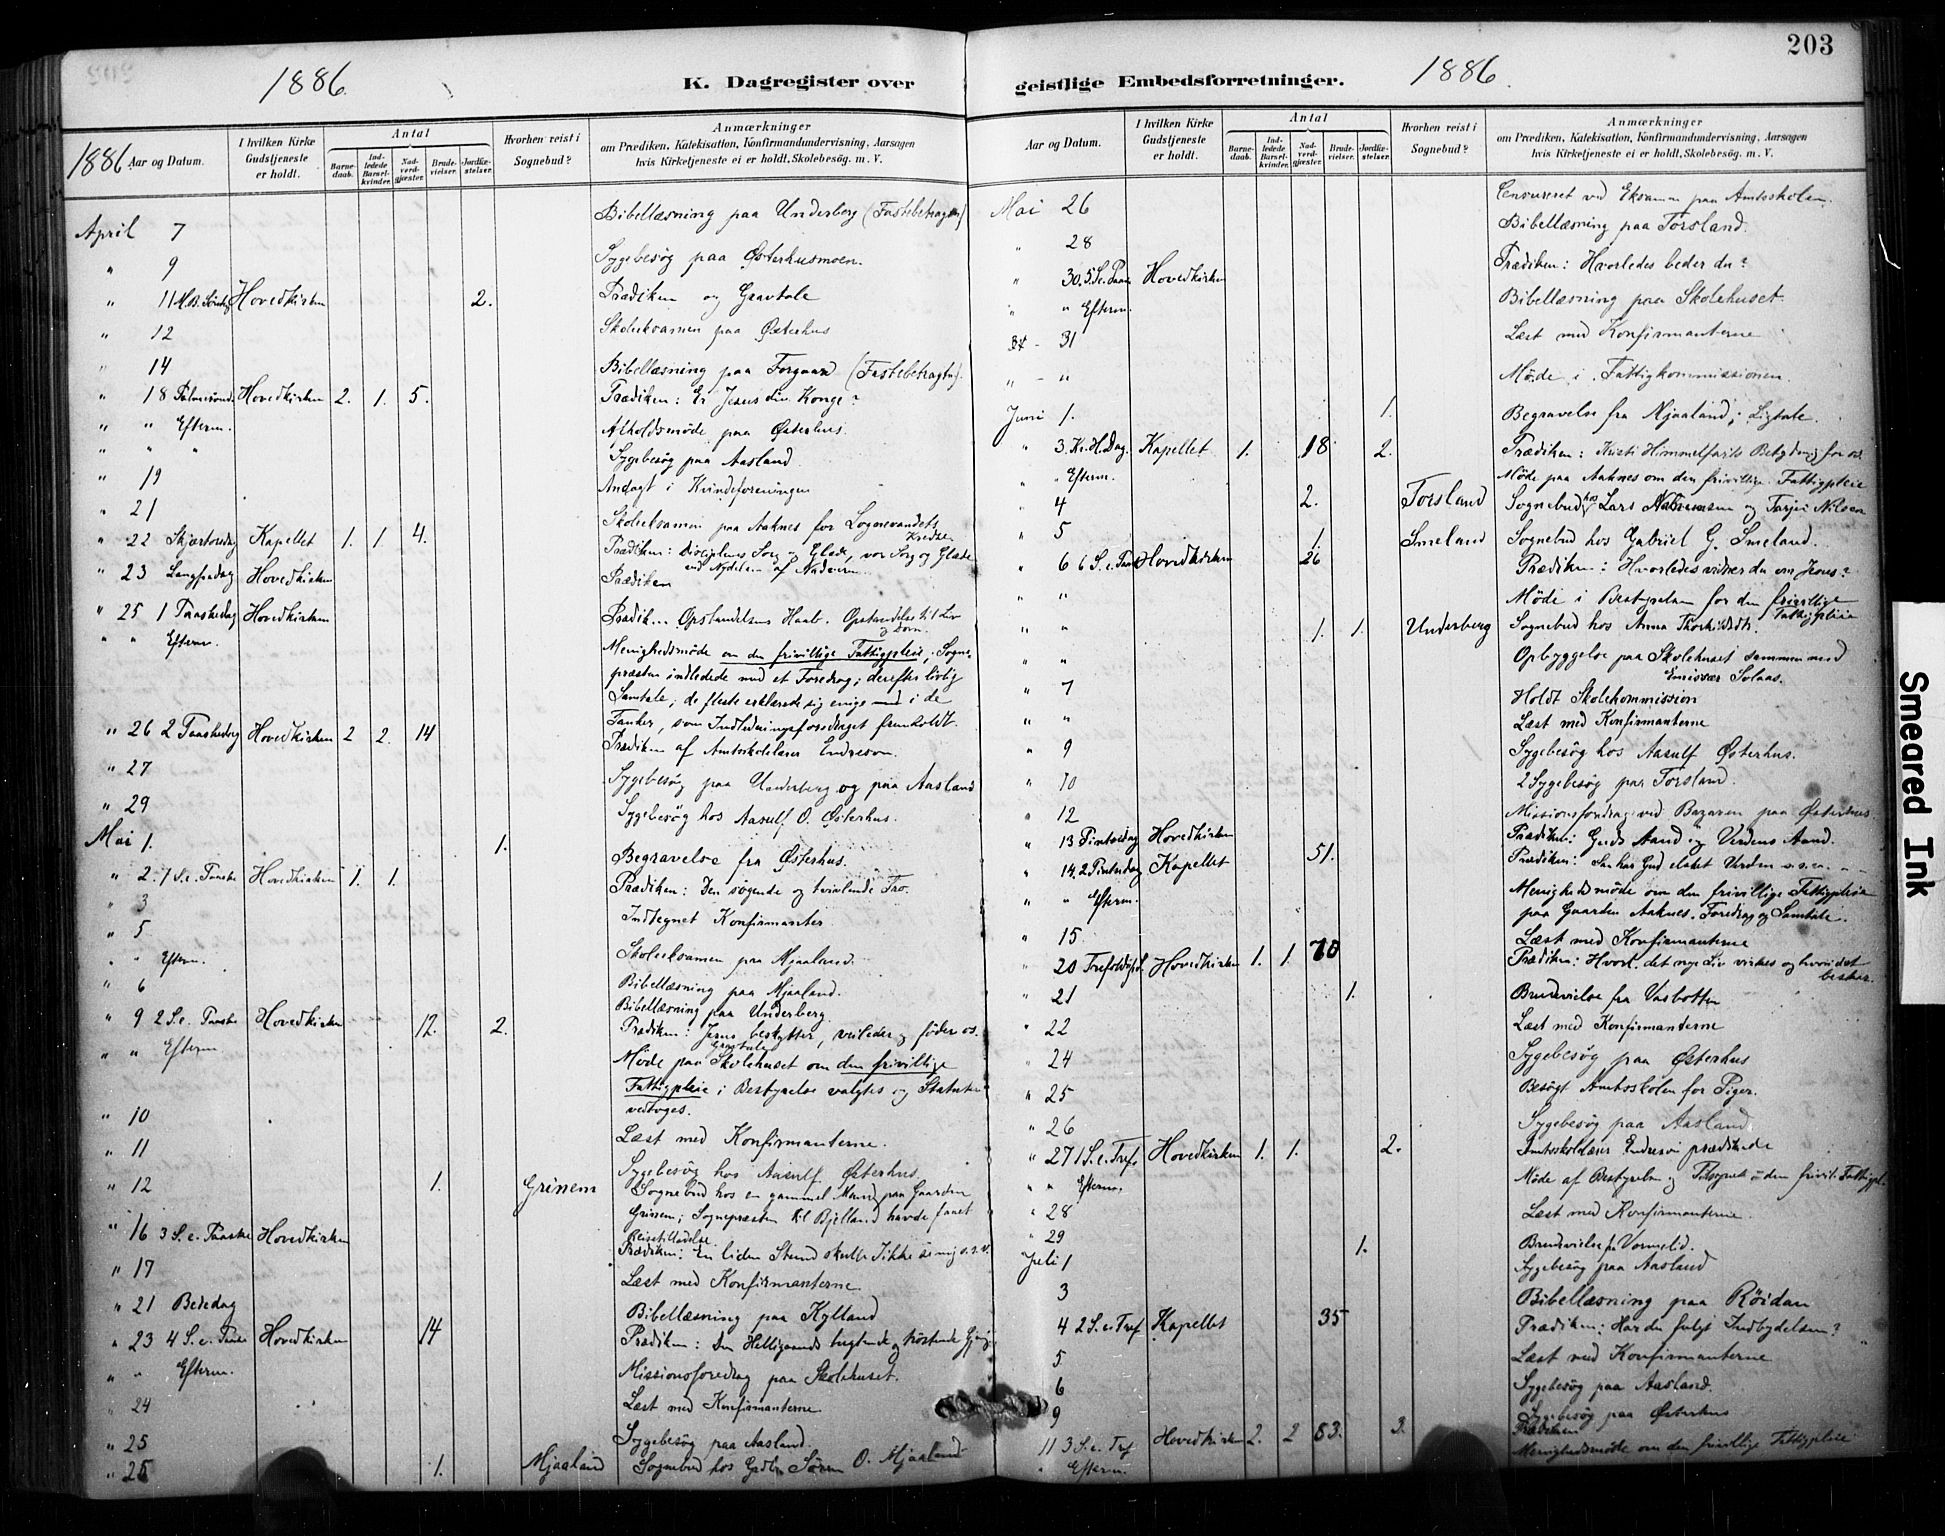 203
1886
K. Dagregister over
geistlige Embedsforretninger.
1886
1886. Aar og Datum. I hvilken Kirke Gudstjeneste er holdt. Antal Barnedaab. Indledede Barselkvinder. Nadverdgjæster. Brudevielser. Jordfæstelser. Hvorhen reist i Sognebud? Anmærkninger om Prædiken, Katekisation, Konfirmandundervisning, Aarsagen hvis Kirketjeneste ei er holdt, Skolebesøg. m. V.
April 7 Bibellæsning paa Underberg (Fastebetragtn)
" 9 Sygebesøg paa Østerhusmoen.
" 11 Hovedkirken 2. Prædiken og Gravtale
" 12 Skoleeksamen paa Østerhus
" 14 Bibellæsning paa Torgaard (Fastebetragtn).
" 18 Palmesønd. Hovedkirken 2. 1. 5. Prædiken: Er Jesus din Konge?
" " Efterm. Afholdsmøde paa Østerhus.
" " " Sygebesøg paa Aasland
" 19 Andagt i Kvindeforeningen
" 21 Skoleeksamen paa Aaknes for Lognevandets Kredse
" 22 Skjærtorsdag Kapellet 1. 1 4. Prædiken: Disciplenes Sorg og Glæde, vor Sorg og Glæde ved Nydelsen af Nadveren.
" 23 Langfredag Hovedkirken Prædiken
" 25 1 Paaskedag Hovedkirken Prædik... Opstandelsens Haab. Opstandelse til Liv og Dom.
" " Efterm. Menighedsmøde om den frivillige Fattigpleie, Sogne-
præsten indledede med et Foredrag; derefter livlig
Samtale; de fleste erklærede sig enige med i de
Tanker, som Indledningsforedraget fremholdt.
" 26 2 Paaskedag Hovedkirken 2 2. 14 Prædiken af Amtsskolelærer Endreson.
" 27 Sygebesøg paa Underberg og paa Aasland
" 29 Sygebesøg hos Aasulf O. Østerhus.
Mai 1. 1. Begravelse fra Østerhus.
" 2. 1 S. e. Paaske Hovedkirken 1. 1. Prædiken: Den søgende og tvivlende Tro.
" 3 Indtegnet Konfirmanter
" 5 Skoleeksamen paa Mjaaland.
" " Efterm. Bibellæsning paa Mjaaland.
" 6 Bibellæsning paa Underberg.
" 9 2 S. e. Paaske Hovedkirken 12. 2. Prædiken: Jesus beskytter, veileder og føder os. Gravtale
" " Efterm Møde paa Skolehuset om den frivillige
Fattigpleie; Bestyrelse valgtes og Statuter
vedtoges.
" 10 Læst med Konfirmanterne.
" 11 Sygebesøg hos Aasulf Østerhus
" 12 1. Grinem Sognebud hos en gammel Mand paa Gaarden
Grinem; Sognepræsten til Bjelland havde faaet
Reisetilladelse.
" 16 3 S. e. Paaske Hovedkirken Prædiken: En liden Stund skulle I ikke se mig o.s.v.
" 17 Læst med Konfirmanterne
" 21 Bededag Bibellæsning paa Kylland
" 23 4 S. e. Paaske Hovedkirken 14 Prædiken: Den Helligaands tugtende og trøstende Gjerning
" " Efterm. Missionsforedrag paa Skolehuset.
" 24 Læst med Konfirmanterne
" 25 Sygebesøg paa Aasland.
" 25 1. Mjaaland Sognebud hos Søren O. Mjaaland
Aar og Datum. I hvilken Kirke Gudstjeneste er holdt. Antal Barnedaab. Indledede Barselkvinder. Nadverdgjæster. Brudevielser. Jordfæstelser. Hvorhen reist i Sognebud? Anmærkninger om Prædiken, Katekisation, Konfirmandundervisning, Aarsagen hvis Kirketjeneste ei er holdt, Skolebesøg. m. V.
Mai 26 Censureret ved Eksamen paa Amtsskolen.
" 28 Bibellæsning paa Torsland.
" 30. 5 S. e. Paaske Hovedkirken Prædiken: Hvorledes beder du?
" " Efterm. Bibellæsning paa Skolehuset.
31 Læst med Konfirmanterne
" - " Møde i Fattigkommissionen.
Juni 1. 1. Begravelse fra Mjaaland; Ligtale.
" 3. Kr. H. Dag. Kapellet 1. 18 2. Prædiken: Kristi Himmelfarts Betydning for os.
" Efterm. Møde paa Aaknes om den frivillige Fattigpleie
" 4 2. Torsland Sognebud hos Lars og Tarjei Nilsen
" 5 1. Smeland Sognebud hos Gabriel G. Smeland.
" 6 6 S. e. Paaske Hovedkirken 26 Prædiken: Hvorledes vidner du om Jesus?
" " Møde i Bestyrelsen for den frivillige Fattigpleie
" " 1. 1. Underberg Sognebud hos Anna Thorkildsdt.
" " Opbyggelse paa Skolehuset sammen med Emissær Solaas.
" 7 Holdt Skolekommission
" " Læst med Konfirmanterne
" 9 Sygebesøg hos Aasulf Østerhus.
" 10 2 Sygebesøg paa Torsland.
" 12 Missionsforedrag ved Bazaren paa Østerhus
" 13 Pintsedag Hovedkirken Prædiken: Guds Aand og Verdens Aand.
" 14. 2 Pintsedag Kapellet 51. Prædiken: Saa har Gud elsket Verden o.s.v.
" " Efterm. Menighedsmøde om den frivillige Fattigpleie
paa Gaarden Aaknes. Foredrag og Samtale.
" 15. Læst med Konfirmanterne
" 20 Trefoldigh. S. Hovedkirken 1. 1. 70 Prædiken: Hvorl. det nye Liv virkes og hvori det bestaar.
" 21 1. Brudevielse fra Vasbotten
" 22 Læst med Konfirmanterne
" 24 Sygebesøg paa Østerhus
" 25 Besøgt Amtsskolen for Piger.
" 26 Sygebesøg paa Aasland
" 27 1 S. e. Tref. Hovedkirken 1. 1. 2. Amtsskolelærer Endreson prædikede
" " Efterm. Møde af Bestyrelsen og den frivil. Fattigpl.
" 28 Læst med Konfirmanterne.
" 29 1. Brudevielse fra Vormelid.
Juli 1 Sygebesøg paa Aasland
3 Bibellæsning paa Røidan
" 4 2 S. e. Tref Kapellet 35 Prædiken: Har du fulgt Indbydelsen?
" 5. Læst med Konfirmanterne
" 6 Sygebesøg paa Aasland.
9 Sygebesøg paa Østerhus
11 3 S. e. Tref Hovedkirken 2. 2 53. 3. Prædiken
" Efterm. Menighedsmøde om den frivillige Fattigpleie
Smeared Ink